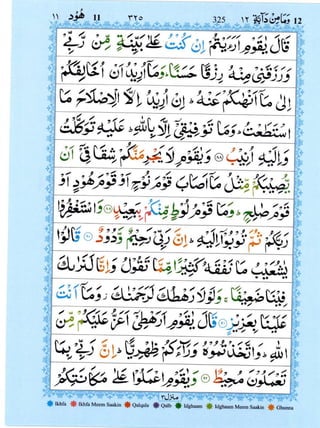 ١١ هُوْد 11 ٣٢٥ 325 وَمَا مِنْ دَآبَّةٍ ١٢ 12
قَالَ يٰقَوْمِ اَرَءَيْتُمْ اِنْ كُنْتُ عَلٰى بَيِّنَةٍ مِّنْ رَّبِّيْ
وَرَزَقَنِيْ مِنْهُ رِزْقًا حَسَنًا ؕ وَمَاۤ اُرِيْدُ اَنْ اُخَالِفَكُمْ
اِلٰى مَاۤ اَنْهٰىكُمْ عَنْهُ ؕ اِنْ اُرِيْدُ اِلَّا الْاِصْلَاحَ مَا
اسْتَطَعْتُ ؕ وَمَا تَوْفِيْقِيْۤ اِلَّا بِاللّٰهِ ؕ عَلَيْهِ تَوَكَّلْتُ
وَاِلَيْهِ اُنِيْبُ ﴿٨٨﴾ وَيٰقَوْمِ لَا يَجْرِمَنَّكُمْ شِقَاقِيْۤ اَنْ
يُّصِيْبَكُمْ مِّثْلُ مَاۤ اَصَابَ قَوْمَ نُوْحٍ اَوْ قَوْمَ هُوْدٍ اَوْ
قَوْمَ صٰلِحٍ ؕ وَمَا قَوْمُ لُوْطٍ مِّنْكُمْ بِبَعِيْدٍ ﴿٨٩﴾ وَاسْتَغْفِرُوْا
رَبَّكُمْ ثُمَّ تُوْبُوْۤا اِلَيْهِ ؕ اِنَّ رَبِّيْ رَحِيْمٌ وَّدُوْدٌ ﴿٩٠﴾ قَالُوْا
يٰشُعَيْبُ مَا نَفْقَهُ كَثِيْرًا مِّمَّا تَقُوْلُ وَاِنَّا لَنَرٰىكَ
فِيْنَا ضَعِيْفًا ۚ وَلَوْلَا رَهْطُكَ لَرَجَمْنٰكَ ؗ وَمَاۤ اَنْتَ
عَلَيْنَا بِعَزِيْزٍ ﴿٩١﴾ قَالَ يٰقَوْمِ اَرَهْطِيْۤ اَعَزُّ عَلَيْكُمْ مِّنَ
اللّٰهِ ؕ وَاتَّخَذْتُمُوْهُ وَرَآءَكُمْ ظِهْرِيًّا ؕ اِنَّ رَبِّيْ بِمَا
تَعْمَلُوْنَ مُحِيْطٌ ﴿٩٢﴾ وَيٰقَوْمِ اعْمَلُوْا عَلٰى مَكَانَتِكُمْ
منزل ٣
Ikhfa Ikhfa Meem Saakin Qalqala Qalb Idghaam Idghaam Meem Saakin Ghunna